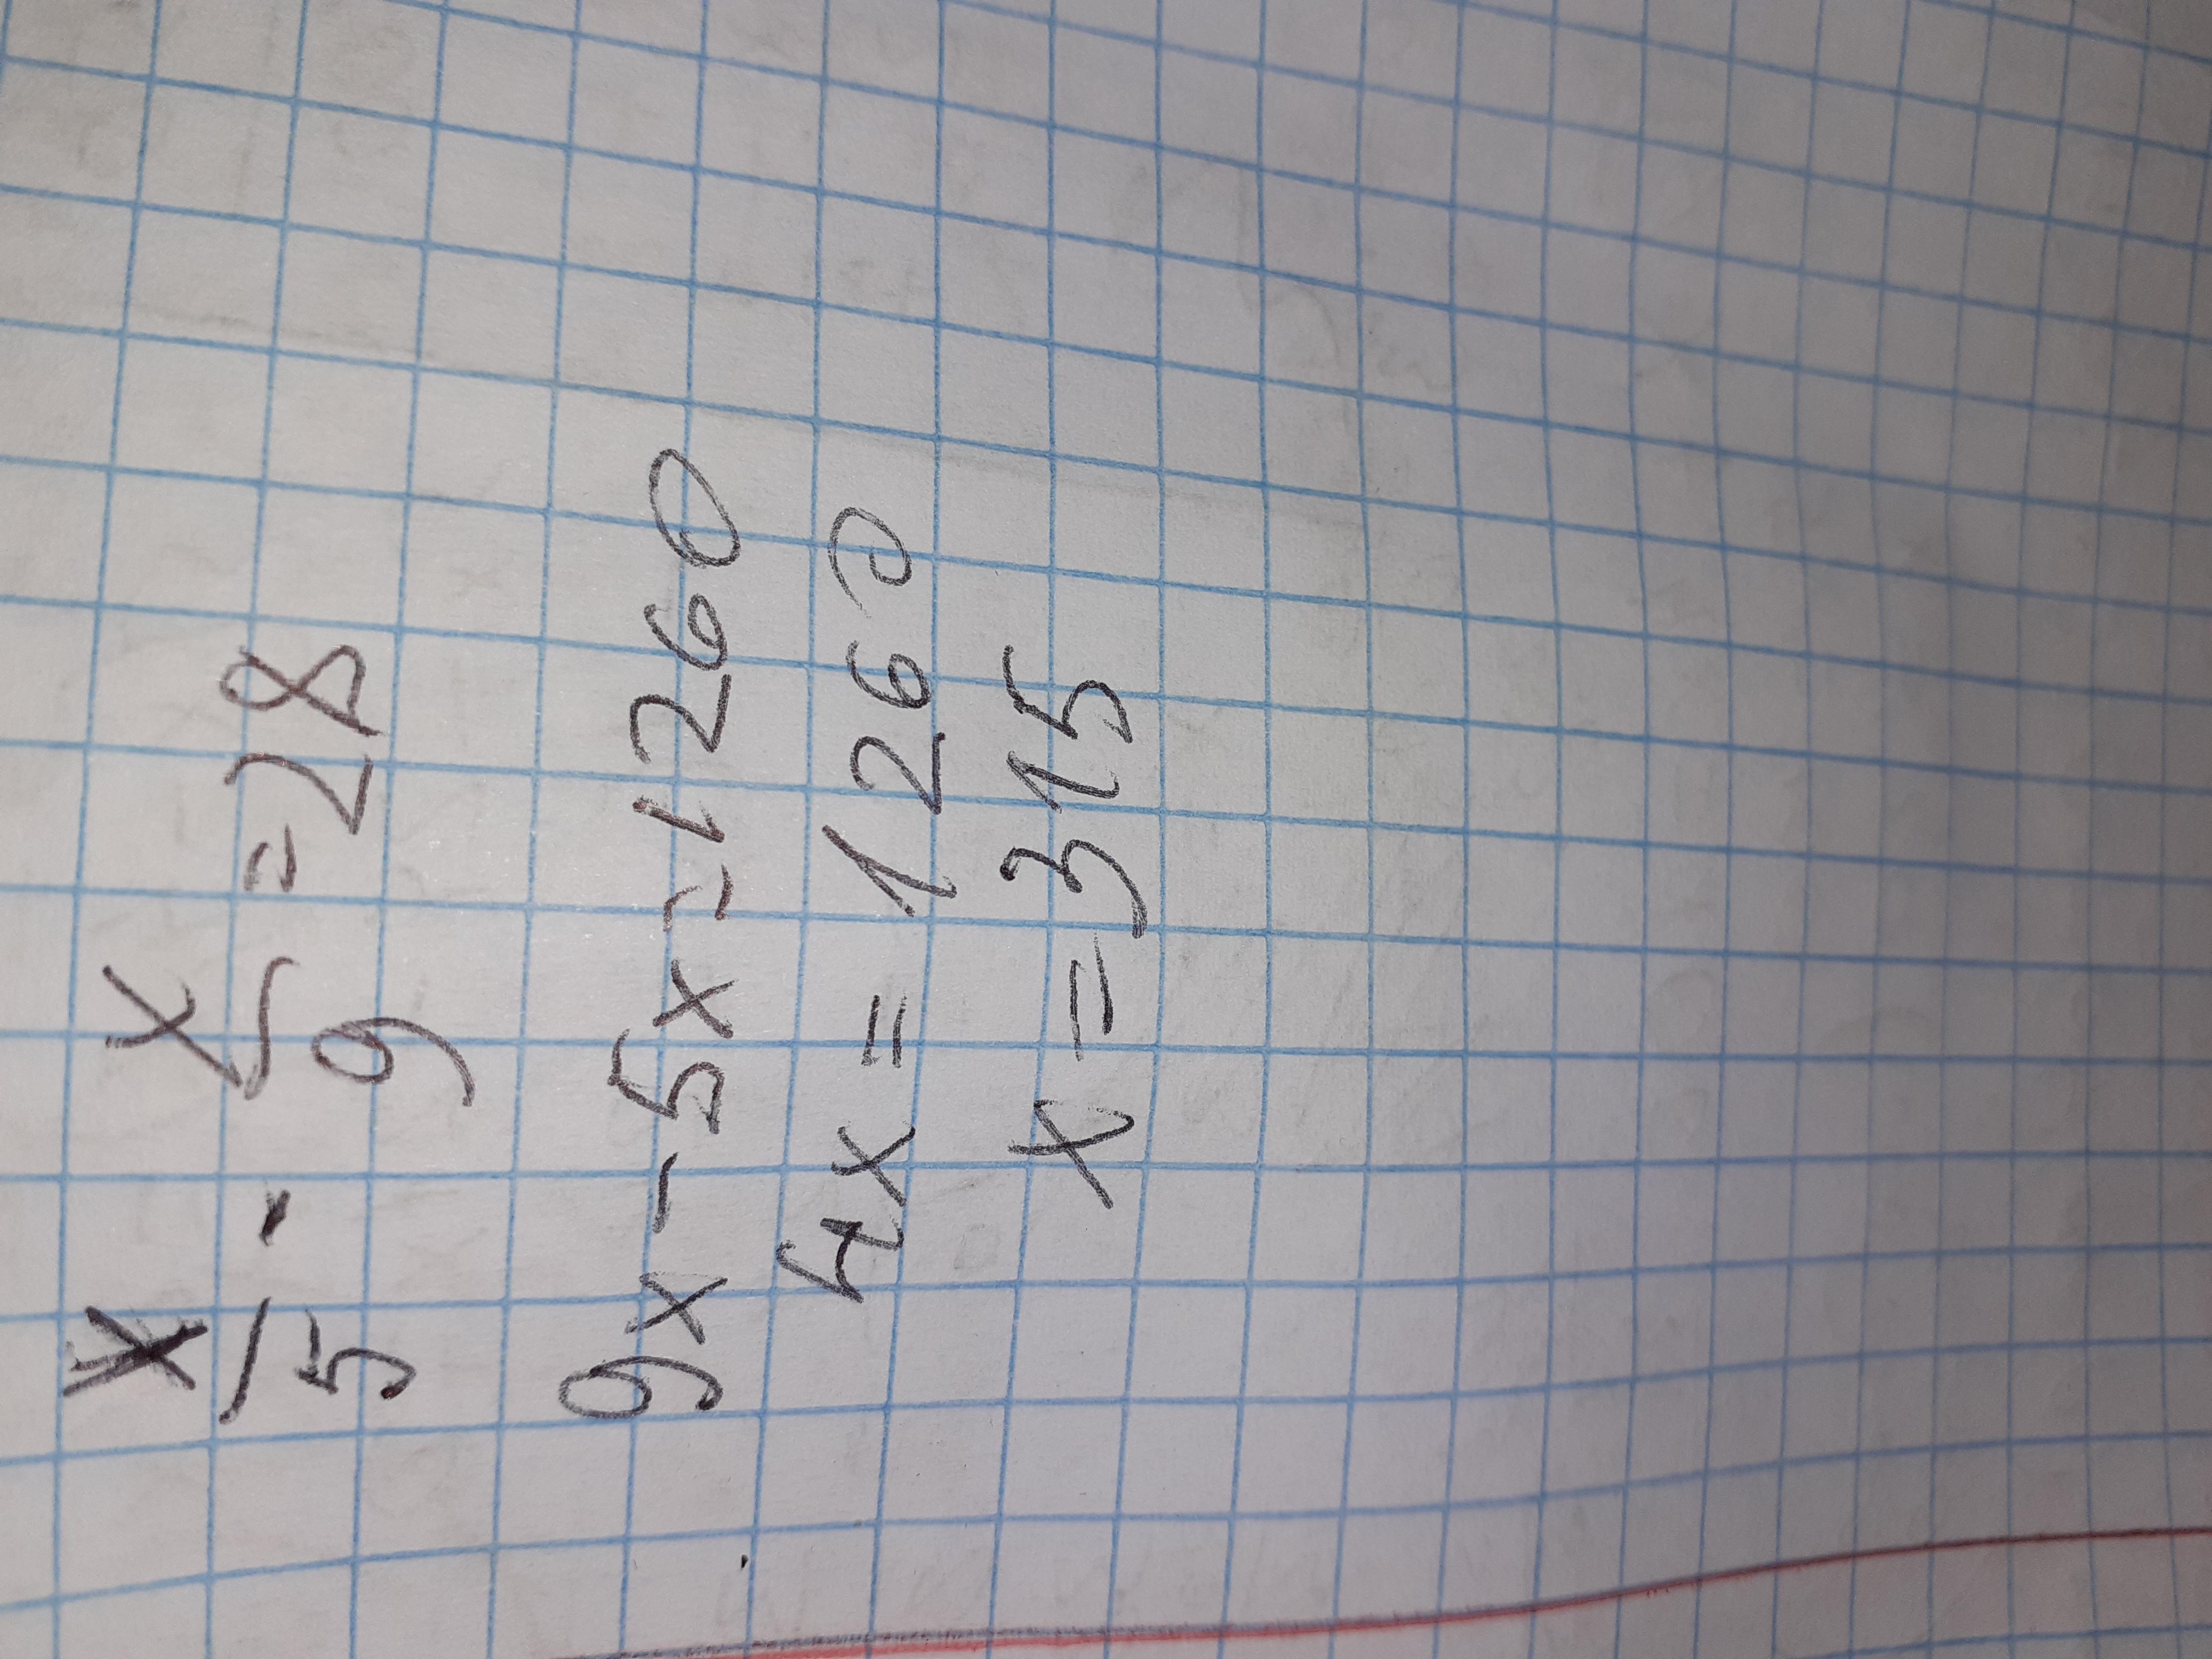 x/5 - x/9 = 28
9x - 5x = 1260
4x = 1260
x = 315